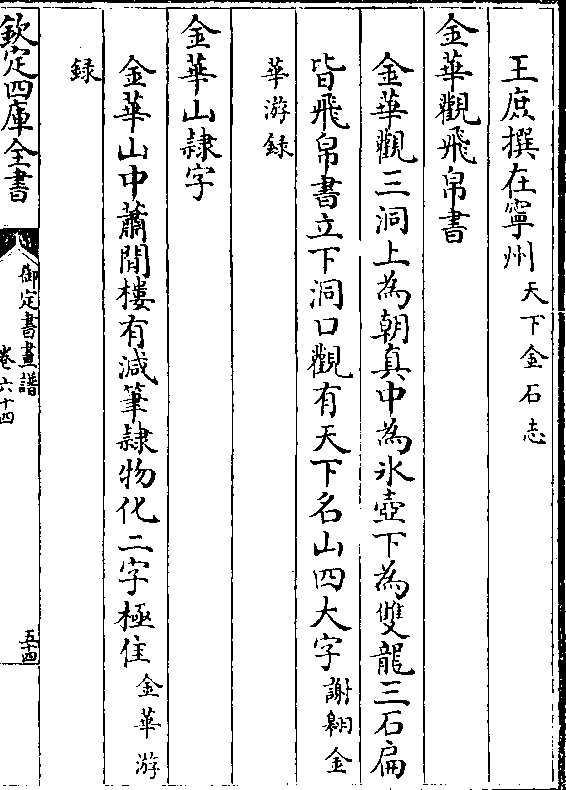 王庶撰在寧州天下金石志
金華觀飛帛書
金華觀三洞上為朝真中為氷壺下為雙龍三石扁
皆飛帛書立下洞口觀有天下名山四大字謝翱金
華游録
金華山隷字
金華山中蕭閒樓有減筆隷物化二字極佳金華游
録
欽定四庫全書
御定書畫譜
卷六十四
五十四